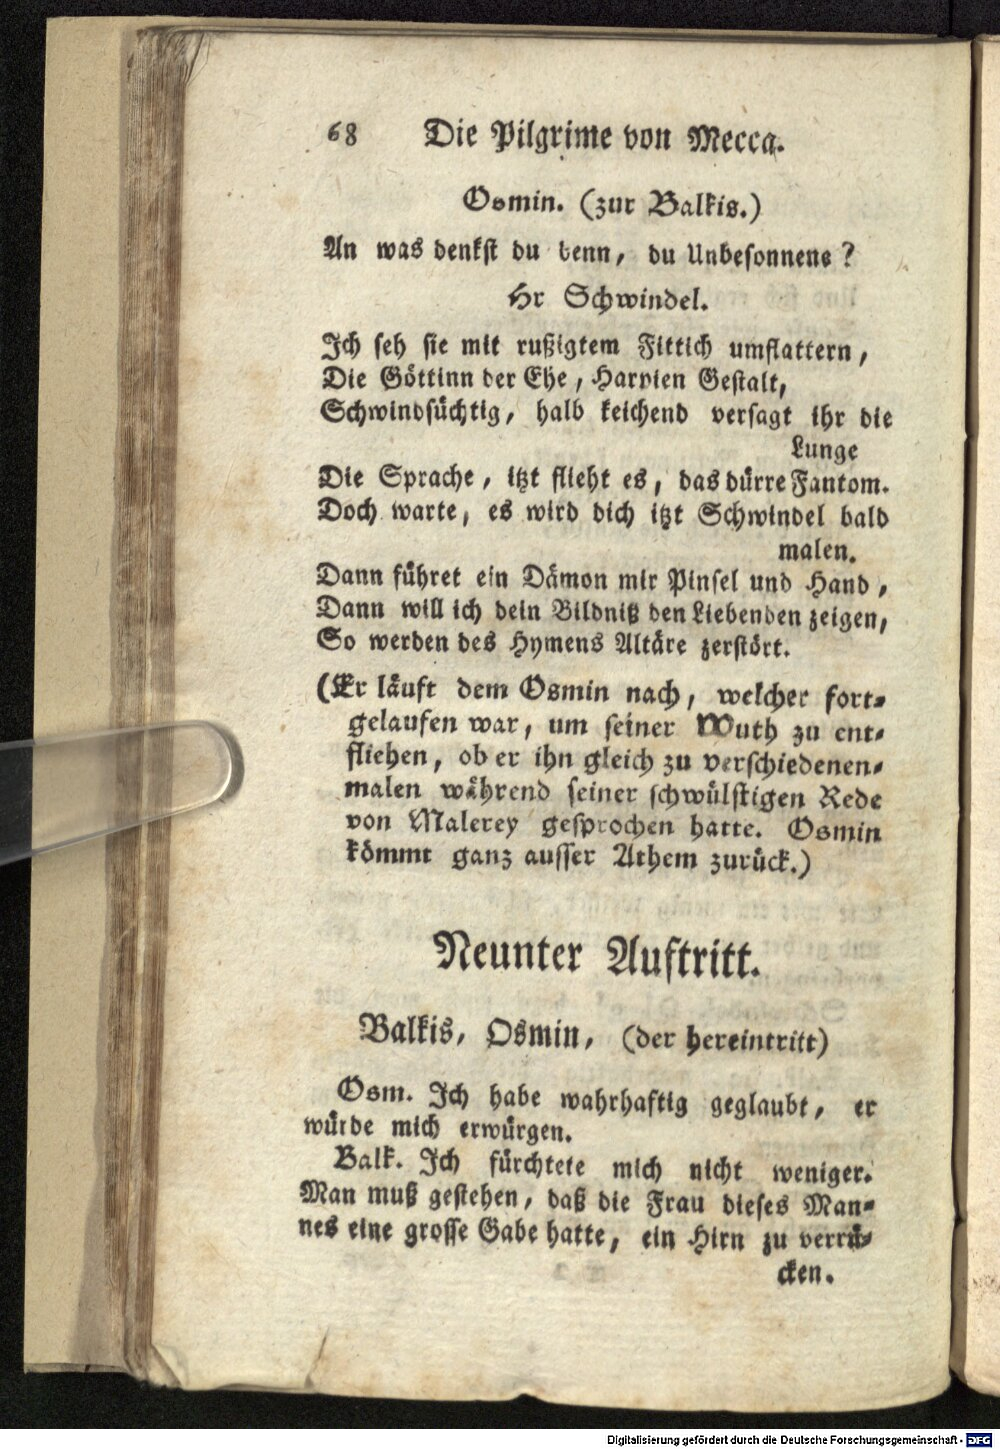 68 Die Pilgrime von Mecca.
Osmin. (zur Balkis.)
An was denkst du denn, du Unbesonnene?
Hr Schwindel.
Ich seh sie mit rußigtem Fittich umflattern,
Die Göttinn der Ehe, Harpien Gestalt,
Schwindsüchtig, halb keichend versagt ihr die
Lunge
Die Sprache, itzt flieht es, das dürre Fantom.
Doch warte, es wird dich itzt Schwindel bald
malen.
Dann führet ein Dämon mir Pinsel und Hand,
Dann will ich dein Bildniß den Liebenden zeigen,
So werden des Hymens Altäre zerstört.
(Er läuft dem Osmin nach, welcher fort-
gelaufen war, um seiner Wuth zu ent-
fliehen, ob er ihn gleich zu verschiedenen-
malen während seiner schwülstigen Rede
von Malerey gesprochen hatte. Osmin
kömmt ganz ausser Athem zurück.)
Neunter Auftritt.
Balkis, Osmin, (der hereintritt)
Osm. Ich habe wahrhaftig geglaubt, er
würde mich erwürgen.
Balk. Ich fürchtete mich nicht weniger.
Man muß gestehen, daß die Frau dieses Man-
nes eine grosse Gabe hatte, ein Hirn zu verrü-
cken.
Digitalisierung gefördert durch die Deutsche Forschungsgemeinschaft - DFG